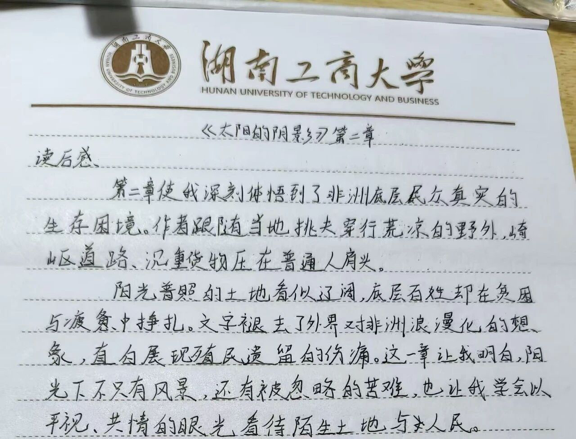 湖南工商大学
HUNAN UNIVERSITY OF TECHNOLOGY AND BUSINESS
《太阳的阴影》第二章
读后感
第二章使我深刻体悟到了非洲底层民众真实的
生存困境。作者跟随当地挑夫穿行荒凉的野外,崎
岖道路、沉重货物压在普通人肩头。
阳光普照的土地看似辽阔,底层百姓却在贫困
与疲惫中挣扎。文字褪去了外界对非洲浪漫化的想
象,直白展现殖民遗留的伤痛。这一章让我明白,阳
光下不只有风景,还有被忽略的苦难,也让我学会以
平视、共情的眼光看待陌生土地与人民。